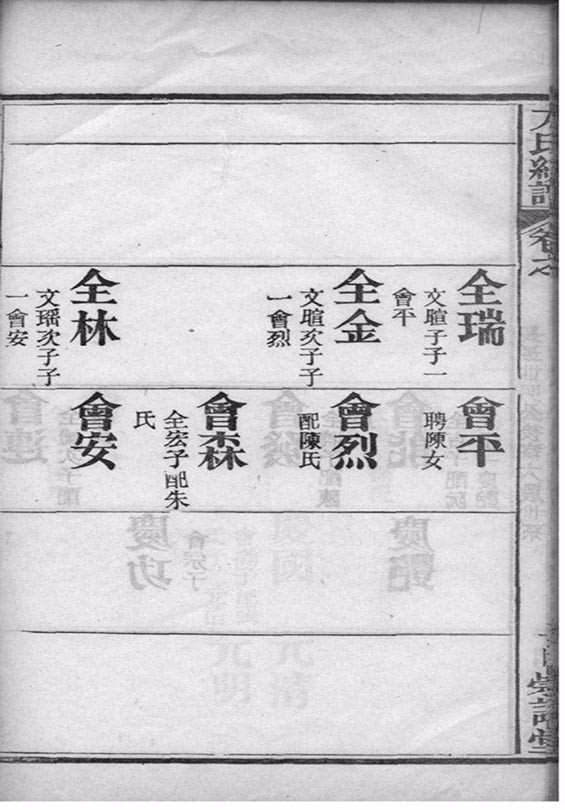 氏
卷之
全瑞
文暄子子一
會平
全金
文暄次子子
一會烈
全林
文瑶次子子
一會安
會平
聘陳女
會烈
配陳氏
會森
全宏子配朱
氏
會安